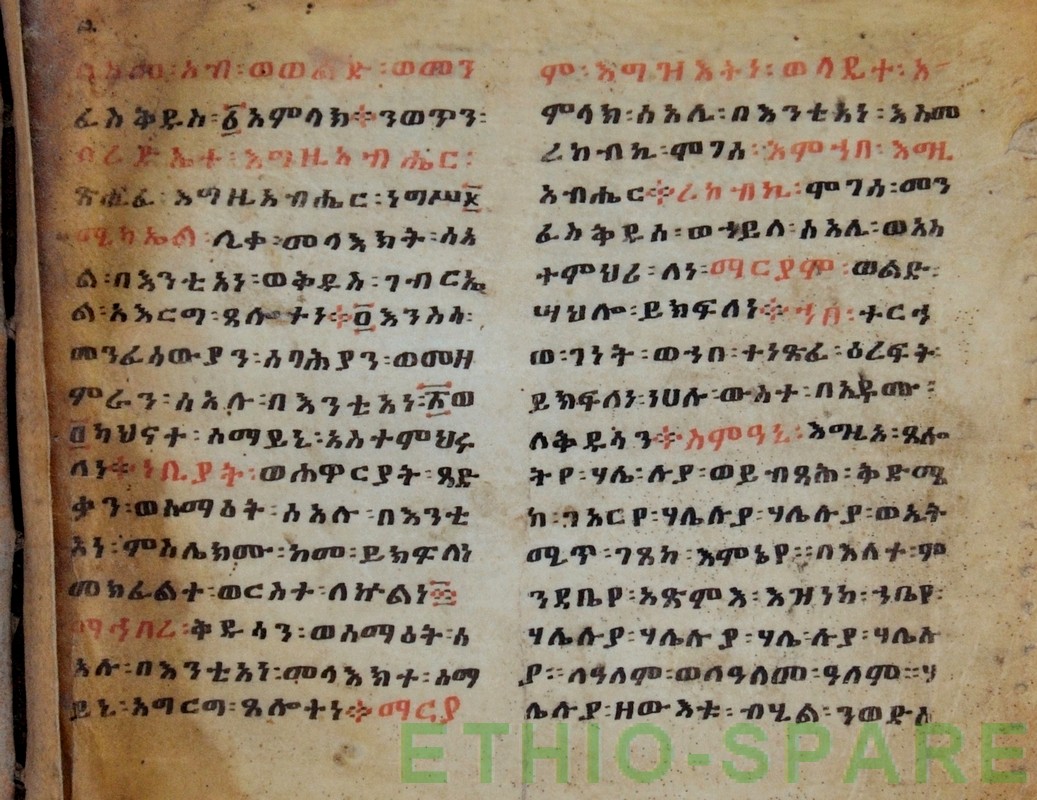 በስመ፡ አብ፡ ወወልድ፡ ወመን
ፈስ ቅዱስ፡ ፩አምላክ፨ንወጥን፡
በረድኤተ፡ እግዚአብሔር፡
ጽሒፈ፡ እግዚአብሔር፡ ነግሥ፩
ሚካኤል፡ ሊቀ፡ መላእክት፡ ሰአ
ል፡ በእንቲአነ፡ ወቅዱስ፡ ገብርኤ
ል፡ አእርግ፡ ጸሎተነ፨፬እንስሳ፡
መንፈሳውያን፡ ሰባሕያን፡ ወመዘ
ምራን፡ ሰአሉ፡ በእንቲአነ፡ ፳ወ
፬ካህናተ፡ ሰማይኒ፡ አስተምህሩ
ለነ፨ነቢያት፡ ወሐዋርያት፡ ጻድ
ቃን፡ ወሰማዕት፡ ሰአሉ፡ በእንቲ
አነ፡ ምስሌክሙ፡ ከመ፡ ይክፍለነ
መክፈልተ፡ ወርስተ፡ ለኵልነ፨
ማኅበረ፡ ቅዱሳን፡ ወሰማዕት፡ ሰ
አሉ፡ በእንቲአነ፡ መላእክተ፡ ሰማ
ይኒ፡ አግርግ፡ ጸሎተነ፨ማርያ
ም፡ እግዝእትነ፡ ወላዲተ፡ አ
ምላክ፡ ሰአሊ፡ በእንቲአነ፡ እስመ
ረከብኪ፡ ሞገሰ፡ እምኀበ፡ እግዚ
አብሔር፨ረከብኪ፡ ሞገሰ፡ መን
ፈስ ቅዱስ፡ ወኀይለ፡ ሰአሊ፡ ወአስ
ተምህሪ፡ ለነ፡ ማርያም፡ ወልድ፡
ሣህሎ፡ ይክፍለነ፨ኀበ፡ ተርኅ
ወ፡ ገነት፡ ወኀበ፡ ተነጽፈ፡ ዕረፍት፡
ይክፍለነ፡ ነሀሉ፡ ውስተ፡ በዓቶሙ፡
ለቅዱሳን፨ስምዓኒ፡ እግዚአ፡ ጸሎ
ትየ፡ ሃሌ፡ ሉያ፡ ወይብጻሕ፡ ቅድሜ
ከ፡ ገአርየ፡ ሃሌሉያ፡ ሃሌሉያ፡ ወኢት
ሚጥ፡ ገጸከ፡ እምኔየ፡፡ በእለተ፡ ም
ንዳቤየ፡ አጽምእ፡ እዝነከ፡ ኀቤየ፡
ሃሌሉያ፡ ሃሌሉያ፡ ሃሌ፡ ሉያ፡ ሃሌሉ
ያ፡፡ ለዓለም፡ ወለዓለመ፡ ዓለም፡፡ ሃ
ሌሉያ፡ ዘውእቱ፡ ብሂል፡ ንወድስ
ETHIO-SPARE